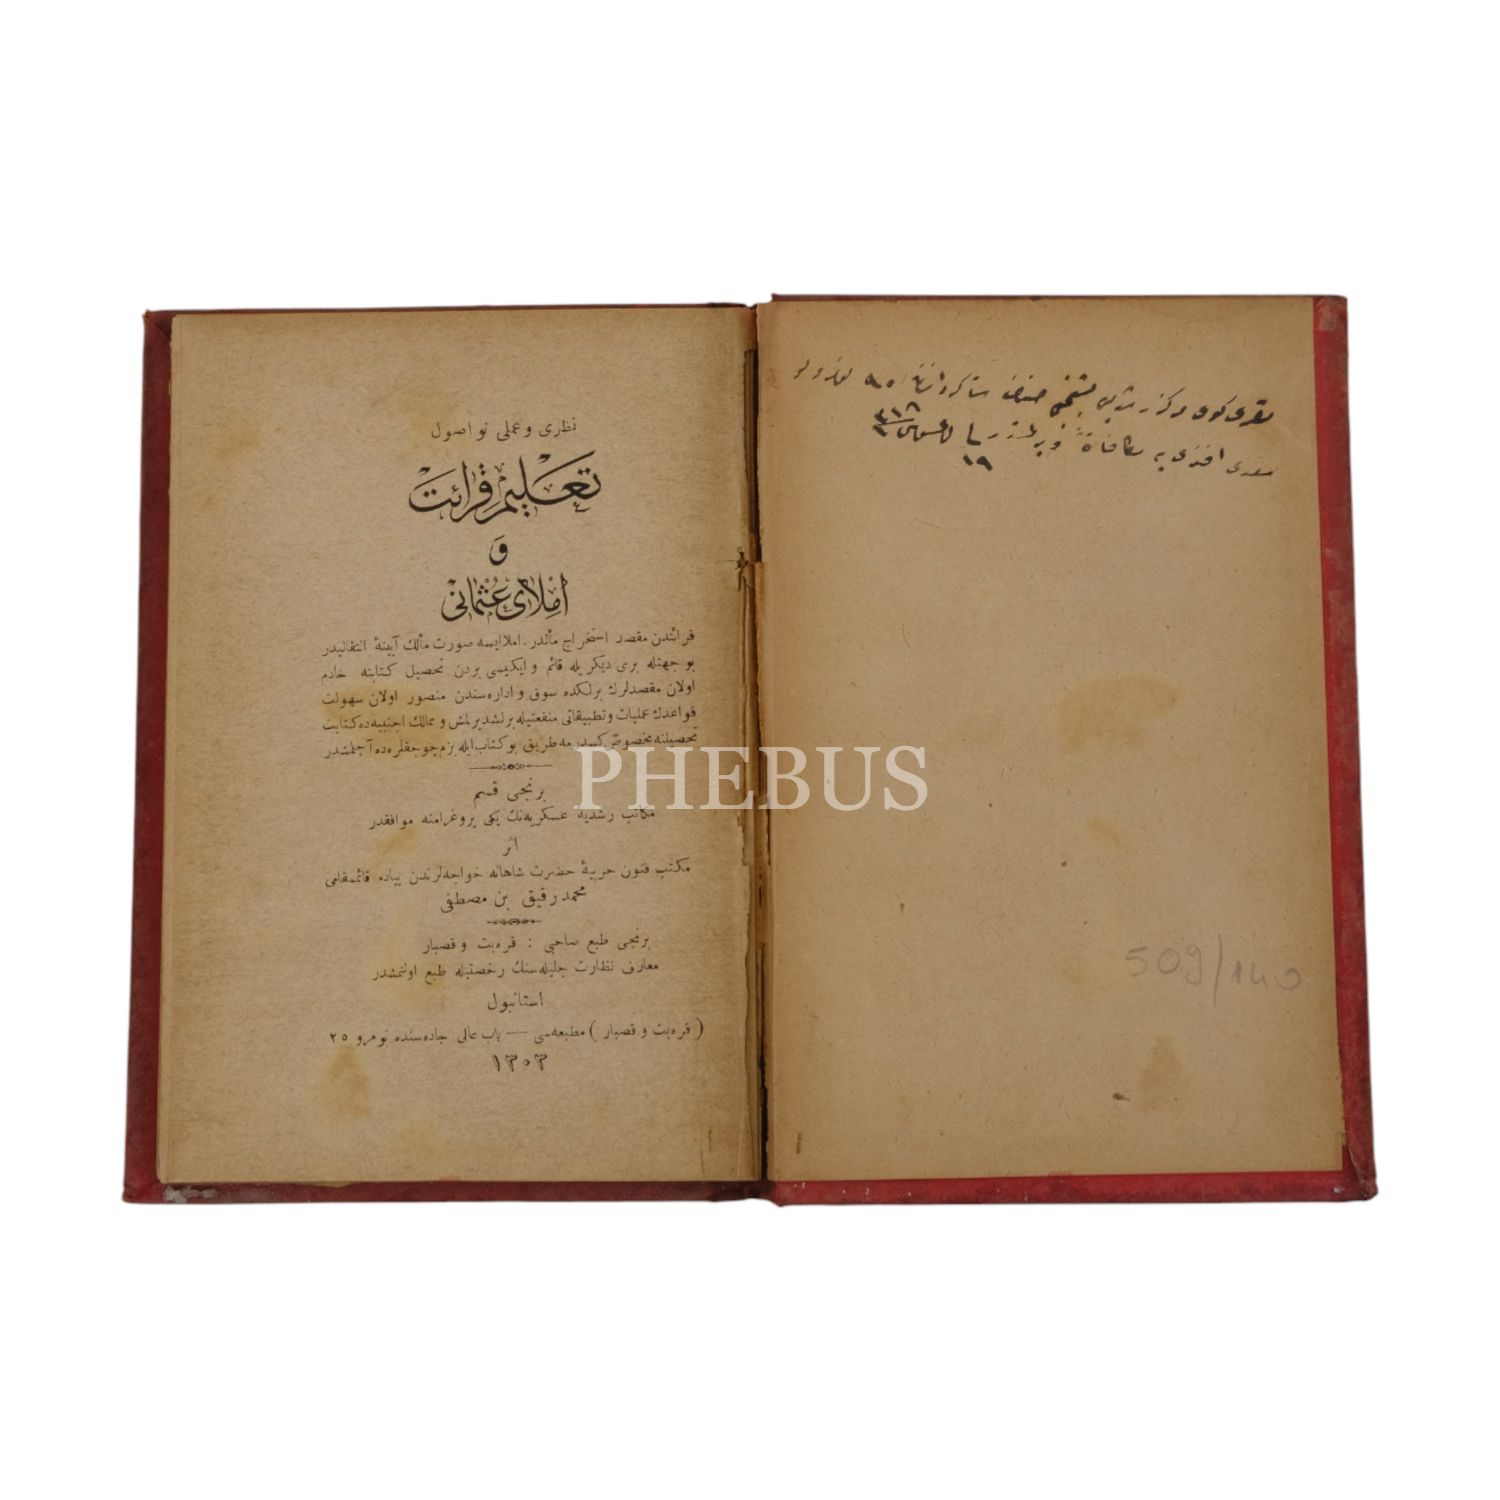 نظری و عملی نو اصول
تعلیم قرائت
و
املای عثمانی
قرائتدن مقصد استخراج مألدر. املا ایسه صورت مألك آیینهٔ انتقالیدر
بو جهتله بری دیكریله قائم و ایكیسی بردن تحصیل كتابته خادم
اولان مقصدلرك برلكده سوق و اداره‌سندن منصور اولان سهولت
قواعدك عملیات و تطبیقاتی منفعتیله برلشدیرلمش و ممالك اجنبیه‌ده كتابت
تحصیلنه مخصوص كسدیرمه طریق بو كتاب ایله بزم چوجقلره‌ده آچلمشدر
برنجی قسم
مكاتب رشدیهٔ عسكریه‌نك یكی پروغرامنه موافقدر
اثر
مكتب فنون حربیهٔ حضرت شاهانه خواجه‌لرندن پیاده قائممقامی
محمد رفیق بن مصطفی
برنجی طبع صاحبی : قره‌بت و قصبار
معارف نظارت جلیله‌سنك رخصتیله طبع اولنمشدر
استانبول
( قره‌بت و قصبار ) مطبعه‌سی — باب عالی جاده‌سنده نومرو ٢٥
١٣٠٣
مركز رشدیه صنف
افندی یه مكافاةً
١٩
509/140
PHEBUS